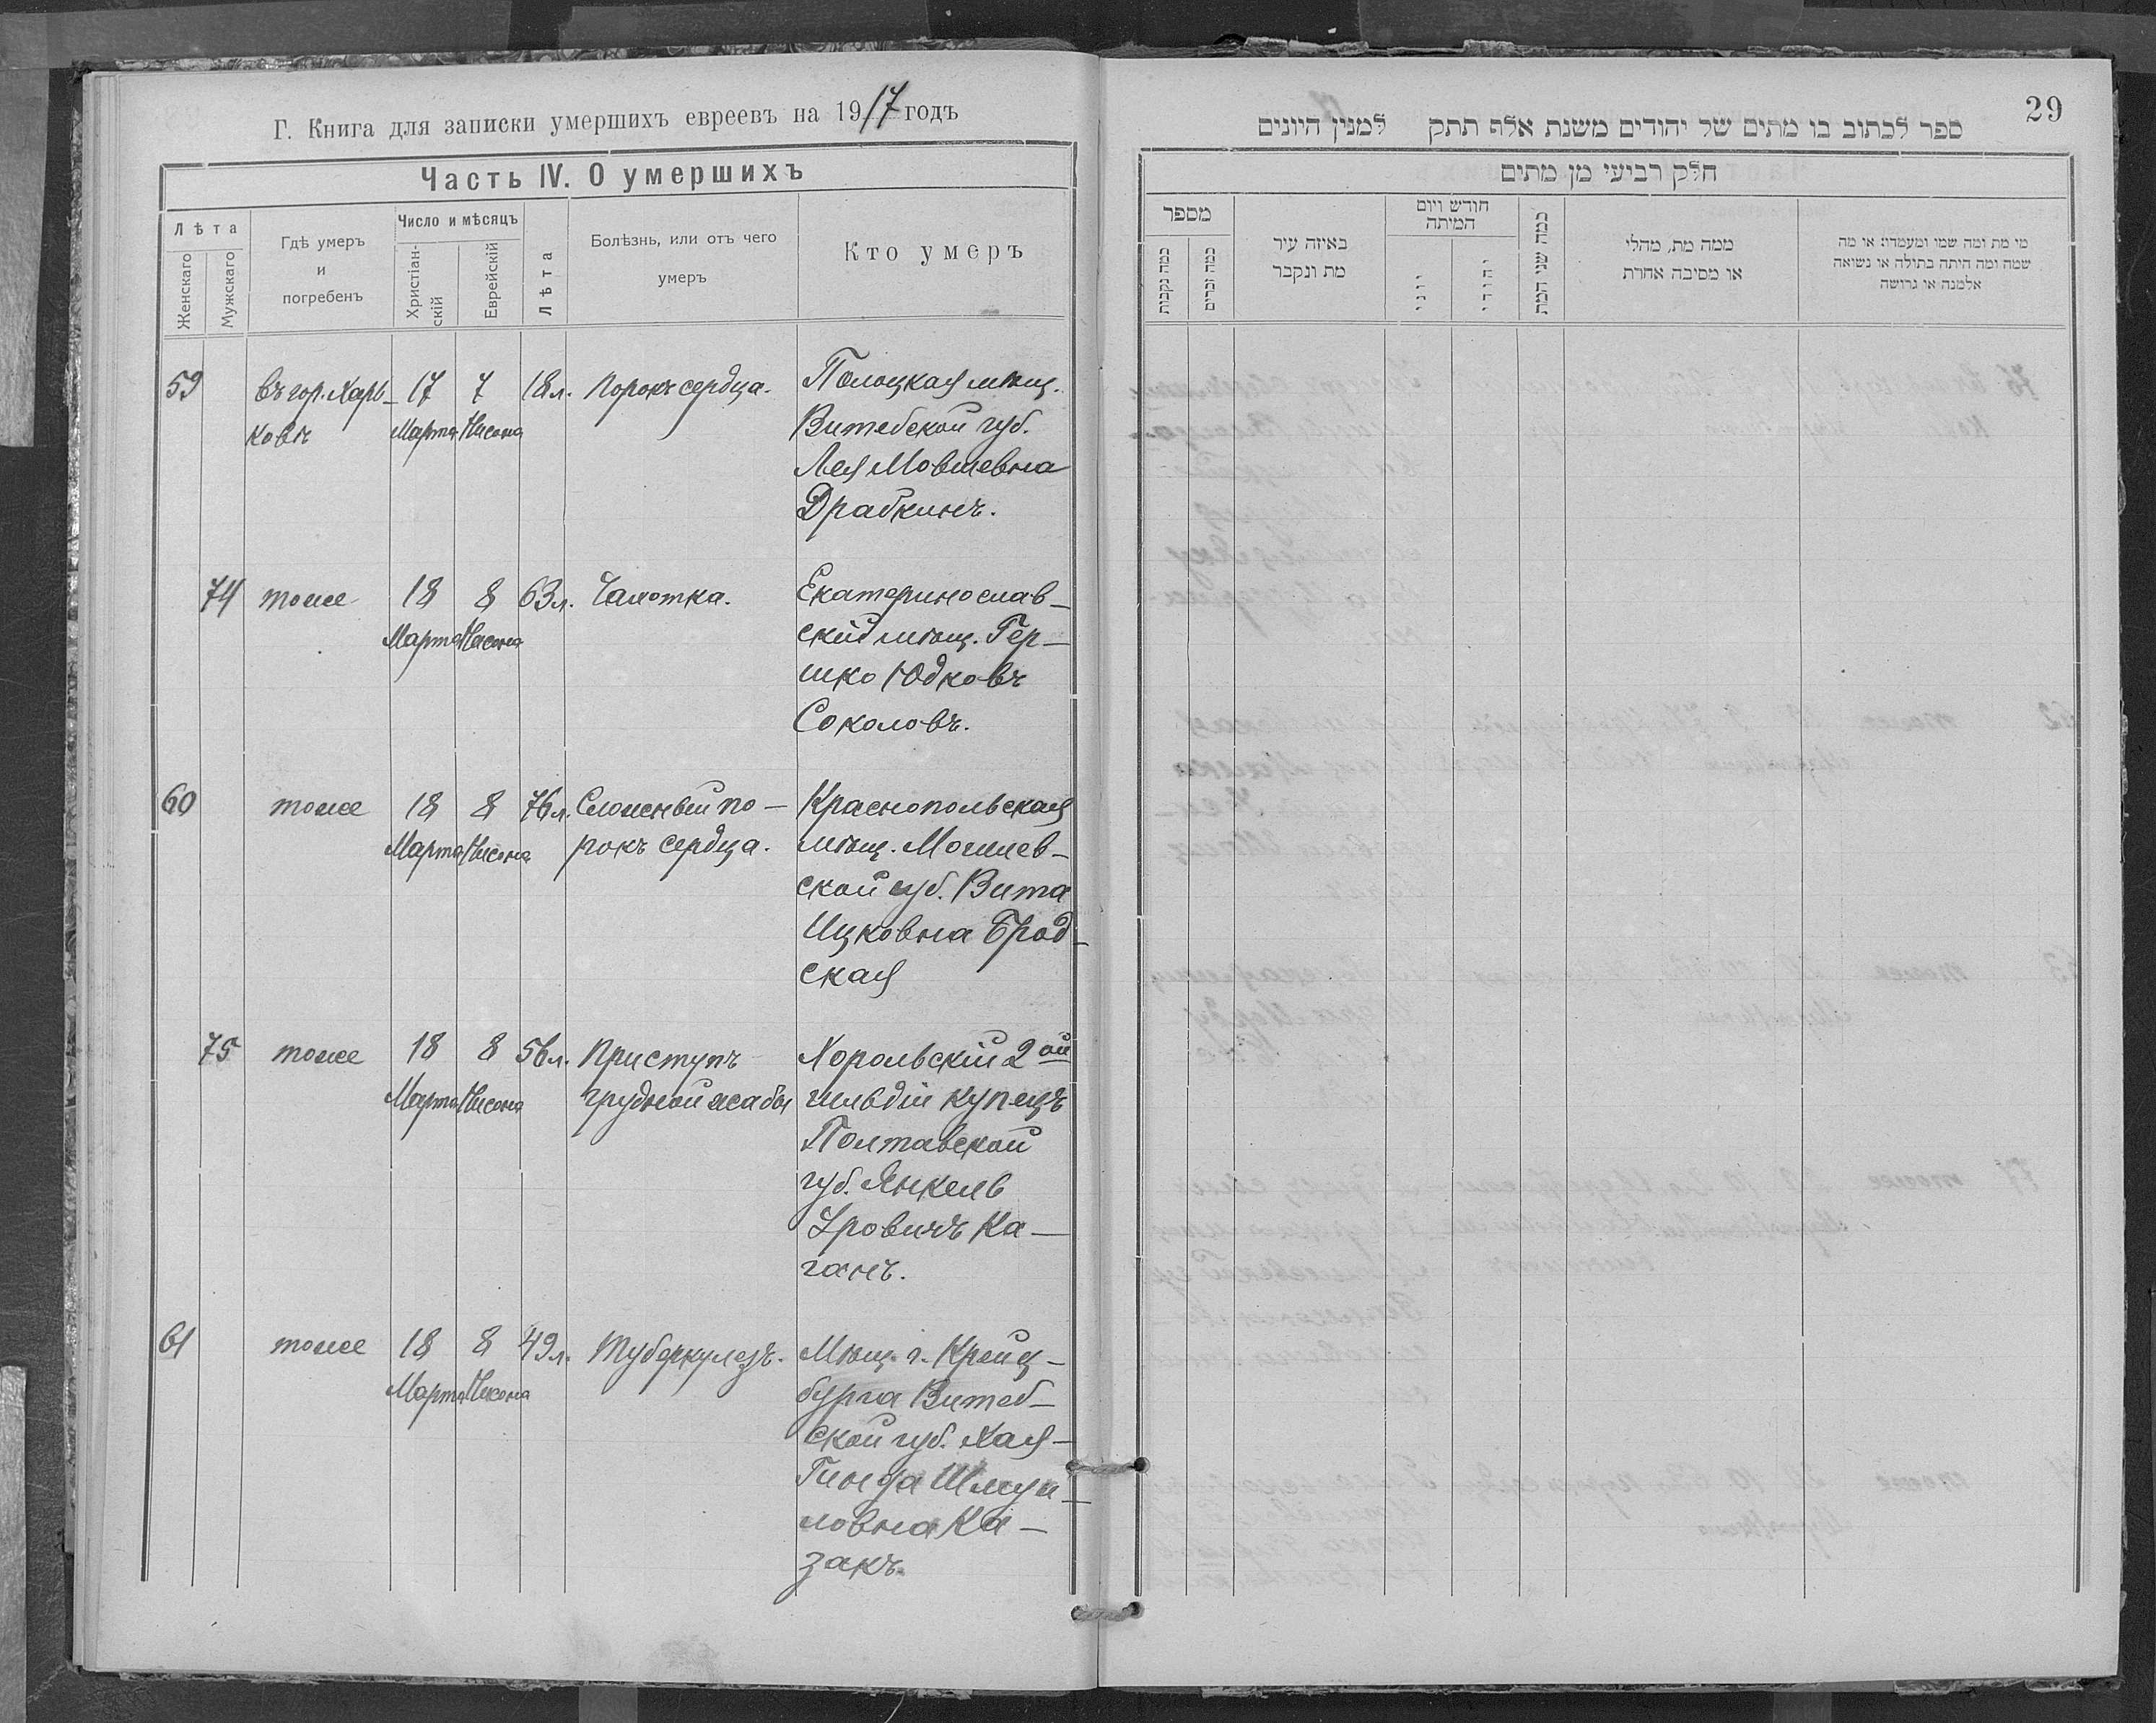 Г. Книга для записки умершихъ евреевъ на 1917 годъ
Часть IV. О умершихъ
Лѣта
Женскаго
Мужскаго
Гдѣ умеръ
и
погребенъ
Число и мѣсяцъ
Христіан-
скій
Еврейскій
Лѣта
Болѣзнь, или отъ чего
умеръ
Кто умеръ
59 въ гор. Харь- 17 7 18 л. Порокъ сердца. Полоцкая мѣщ.
ковѣ Марта Нисона Витебской губ.
Лея Мовшевна
Драбкинъ.
74 тоже 18 8 63 л. Чахотка. Екатеринослав-
Марта Нисона скій мѣщ. Гер-
шко Юдковъ
Соколовъ.
60 тоже 18 8 76 л. Сложный по- Краснопольская
Марта Нисона рокъ сердца. мѣщ. Могилев-
ской губ. Вита
Ицковна Брод-
ская
75 тоже 18 8 56 л. Приступъ Хорольскій 2ой
Марта Нисона грудной жабы гильдіи купецъ
Полтавской
губ. Янкель
Уровичъ Ка-
ганъ.
61 тоже 18 8 49 л. Туберкулезъ. Мѣщ. г. Крейц-
Марта Нисона бурга Витеб-
ской губ. Хая-
Гинда Шмуи-
ловна Ка-
закъ.
29
ספר לכתוב בו מתים של יהודים משנת אלף תתק למנין היונים
חלק רביעי מן מתים
מספר
כמה נקבות
כמה זכרים
באיזה עיר
מת ונקבר
חודש ויום
המיתה
יוני
יהודי
כמה שני המת
ממה מת, מחלי
או מסיבה אחרת
מי מת ומה שמו ומעמדו: או מה
שמה ומה היתה בתולה או נשואה
אלמנה או גרושה